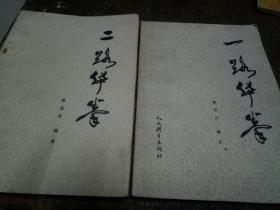 二路华拳
一路华拳
人民体育出版社